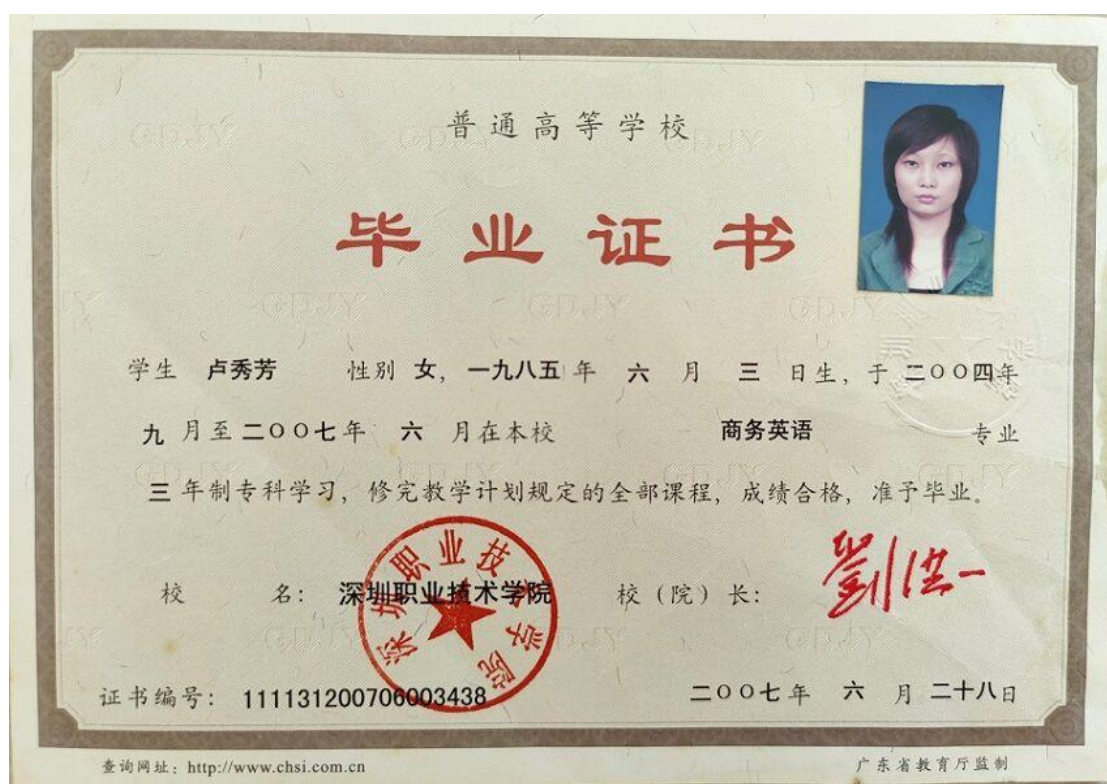 普通高等学校
毕业证书
学生 卢秀芳 性别 女，一九八五年 六 月 三 日生，于 二〇〇四年
九 月至 二〇〇七年 六 月在本校 商务英语 专业
三 年制专科学习，修完教学计划规定的全部课程，成绩合格，准予毕业。
校 名： 深圳职业技术学院 校（院）长： 劉洪一
深圳职业技术学院
证书编号： 111131200706003438 二〇〇七年 六 月 二十八日
查询网址：http://www.chsi.com.cn 广东省教育厅监制
GDJY GDJY GDJY
GDJY GDJY GDJY